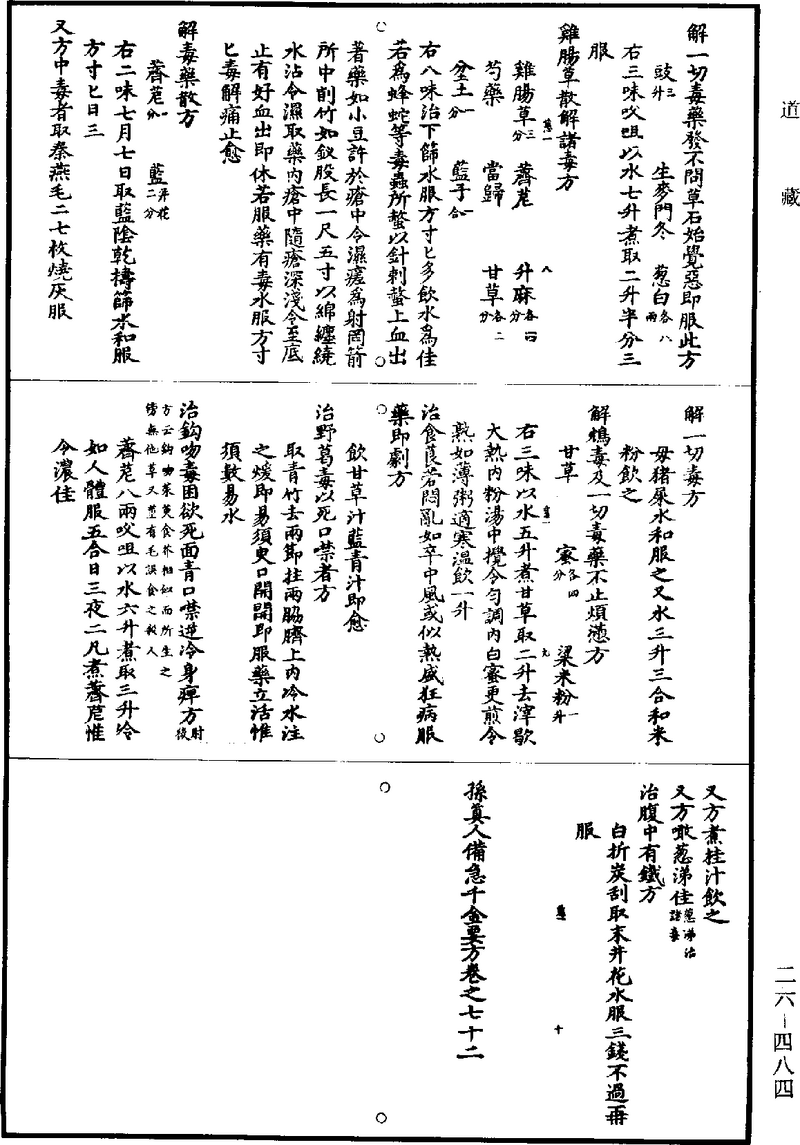 道藏
解一切毒藥發不問草石始覺惡即服此方
豉三升 生麥門冬 葱白各八兩
右三味㕮咀以水七升煮取二升半分三
服
雞腸草散解諸毒方
雞腸草三分 薺苨 升麻各四分
芍藥 當歸 甘草各二分
坌土一分 藍子一合
右八味治下篩水服方寸匕多飲水為佳
若為蜂蛇等毒蟲所螫以針刺螫上血出
著藥如小豆許於瘡中令濕瘥為射罔箭
所中削竹如釵股長一尺五寸以綿纏繞
水沾令濕取藥內瘡中隨瘡深淺令至底
止有好血出即休若服藥有毒水服方寸
匕毒解痛止愈
解毒藥散方
薺苨一分 藍并花二分
右二味七月七日取藍陰乾擣篩水和服
方寸匕日三
又方中毒者取秦燕毛二七枚燒灰服
解一切毒方
母豬屎水和服之又水三升三合和米
粉飲之
解鴆毒及一切毒藥不止煩懣方
甘草 蜜各四分 粱米粉一升
右三味以水五升煮甘草取二升去滓歇
大熱內粉湯中攪令勻調內白蜜更煎令
熟如薄粥適寒溫飲一升
治食莨菪悶亂如卒中風或似熱盛狂病服
藥即劇方
飲甘草汁藍青汁即愈
治野葛毒以死口噤者方
取青竹去兩節拄兩脇臍上內冷水注
之煖即易須臾口開開即服藥立活惟
須數易水
治鈎吻毒困欲死面青口噤逆冷身痺方肘後
方云鈎吻茱萸食芥相似而所生之
傍無他草又莖有毛誤食之殺人
薺苨八兩㕮咀以水六升煮取三升冷
如人體服五合日三夜二凡煮薺苨惟
令濃佳
又方煮桂汁飲之
又方啖葱涕佳葱涕治諸毒
治腹中有鐵方
白折炭刮取末井花水服三錢不過再
服
孫真人備急千金要方卷之七十二
二六－四八四